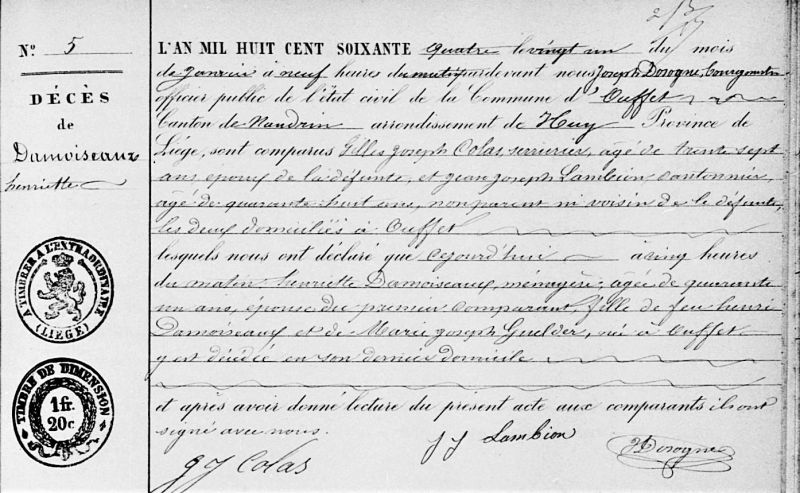 N.º 5
DÉCÈS
de
Damoiseaux
henriette
A TIMBRER A L'EXTRAORDINAIRE
(LIÉGE)
TIMBRE DE DIMENSION
1 fr.
20c.
L'AN MIL HUIT CENT SOIXANTE quatre le vingt un du mois
de Janvier à neuf heures du matin pardevant nous Joseph Dorogne, Bourgmestre
officier public de l'état civil de la Commune d'Ouffet
Canton de Nandrin arrondissement de Huy Province de
Liége, sont comparus Gilles Joseph Colas, serrurier, agé de trente sept
ans époux de la défunte, et jean joseph Lambion, cantonnier,
agé de quarante huit ans, non parent ni voisin de la défunte,
les deux domiciliés à Ouffet
lesquels nous ont déclaré que cejourd'hui à cinq heures
du matin henriette Damoiseaux, menagère, agée de quarante
un ans, épouse du premier comparant, fille de feu henri
Damoiseaux et de Marie joseph Guelder, née à Ouffet
y est décédée en son dernier domicile
et après avoir donné lecture du présent acte aux comparants ils ont
signé avec nous.
JJ Lambion
Dorogne
GJ Colas